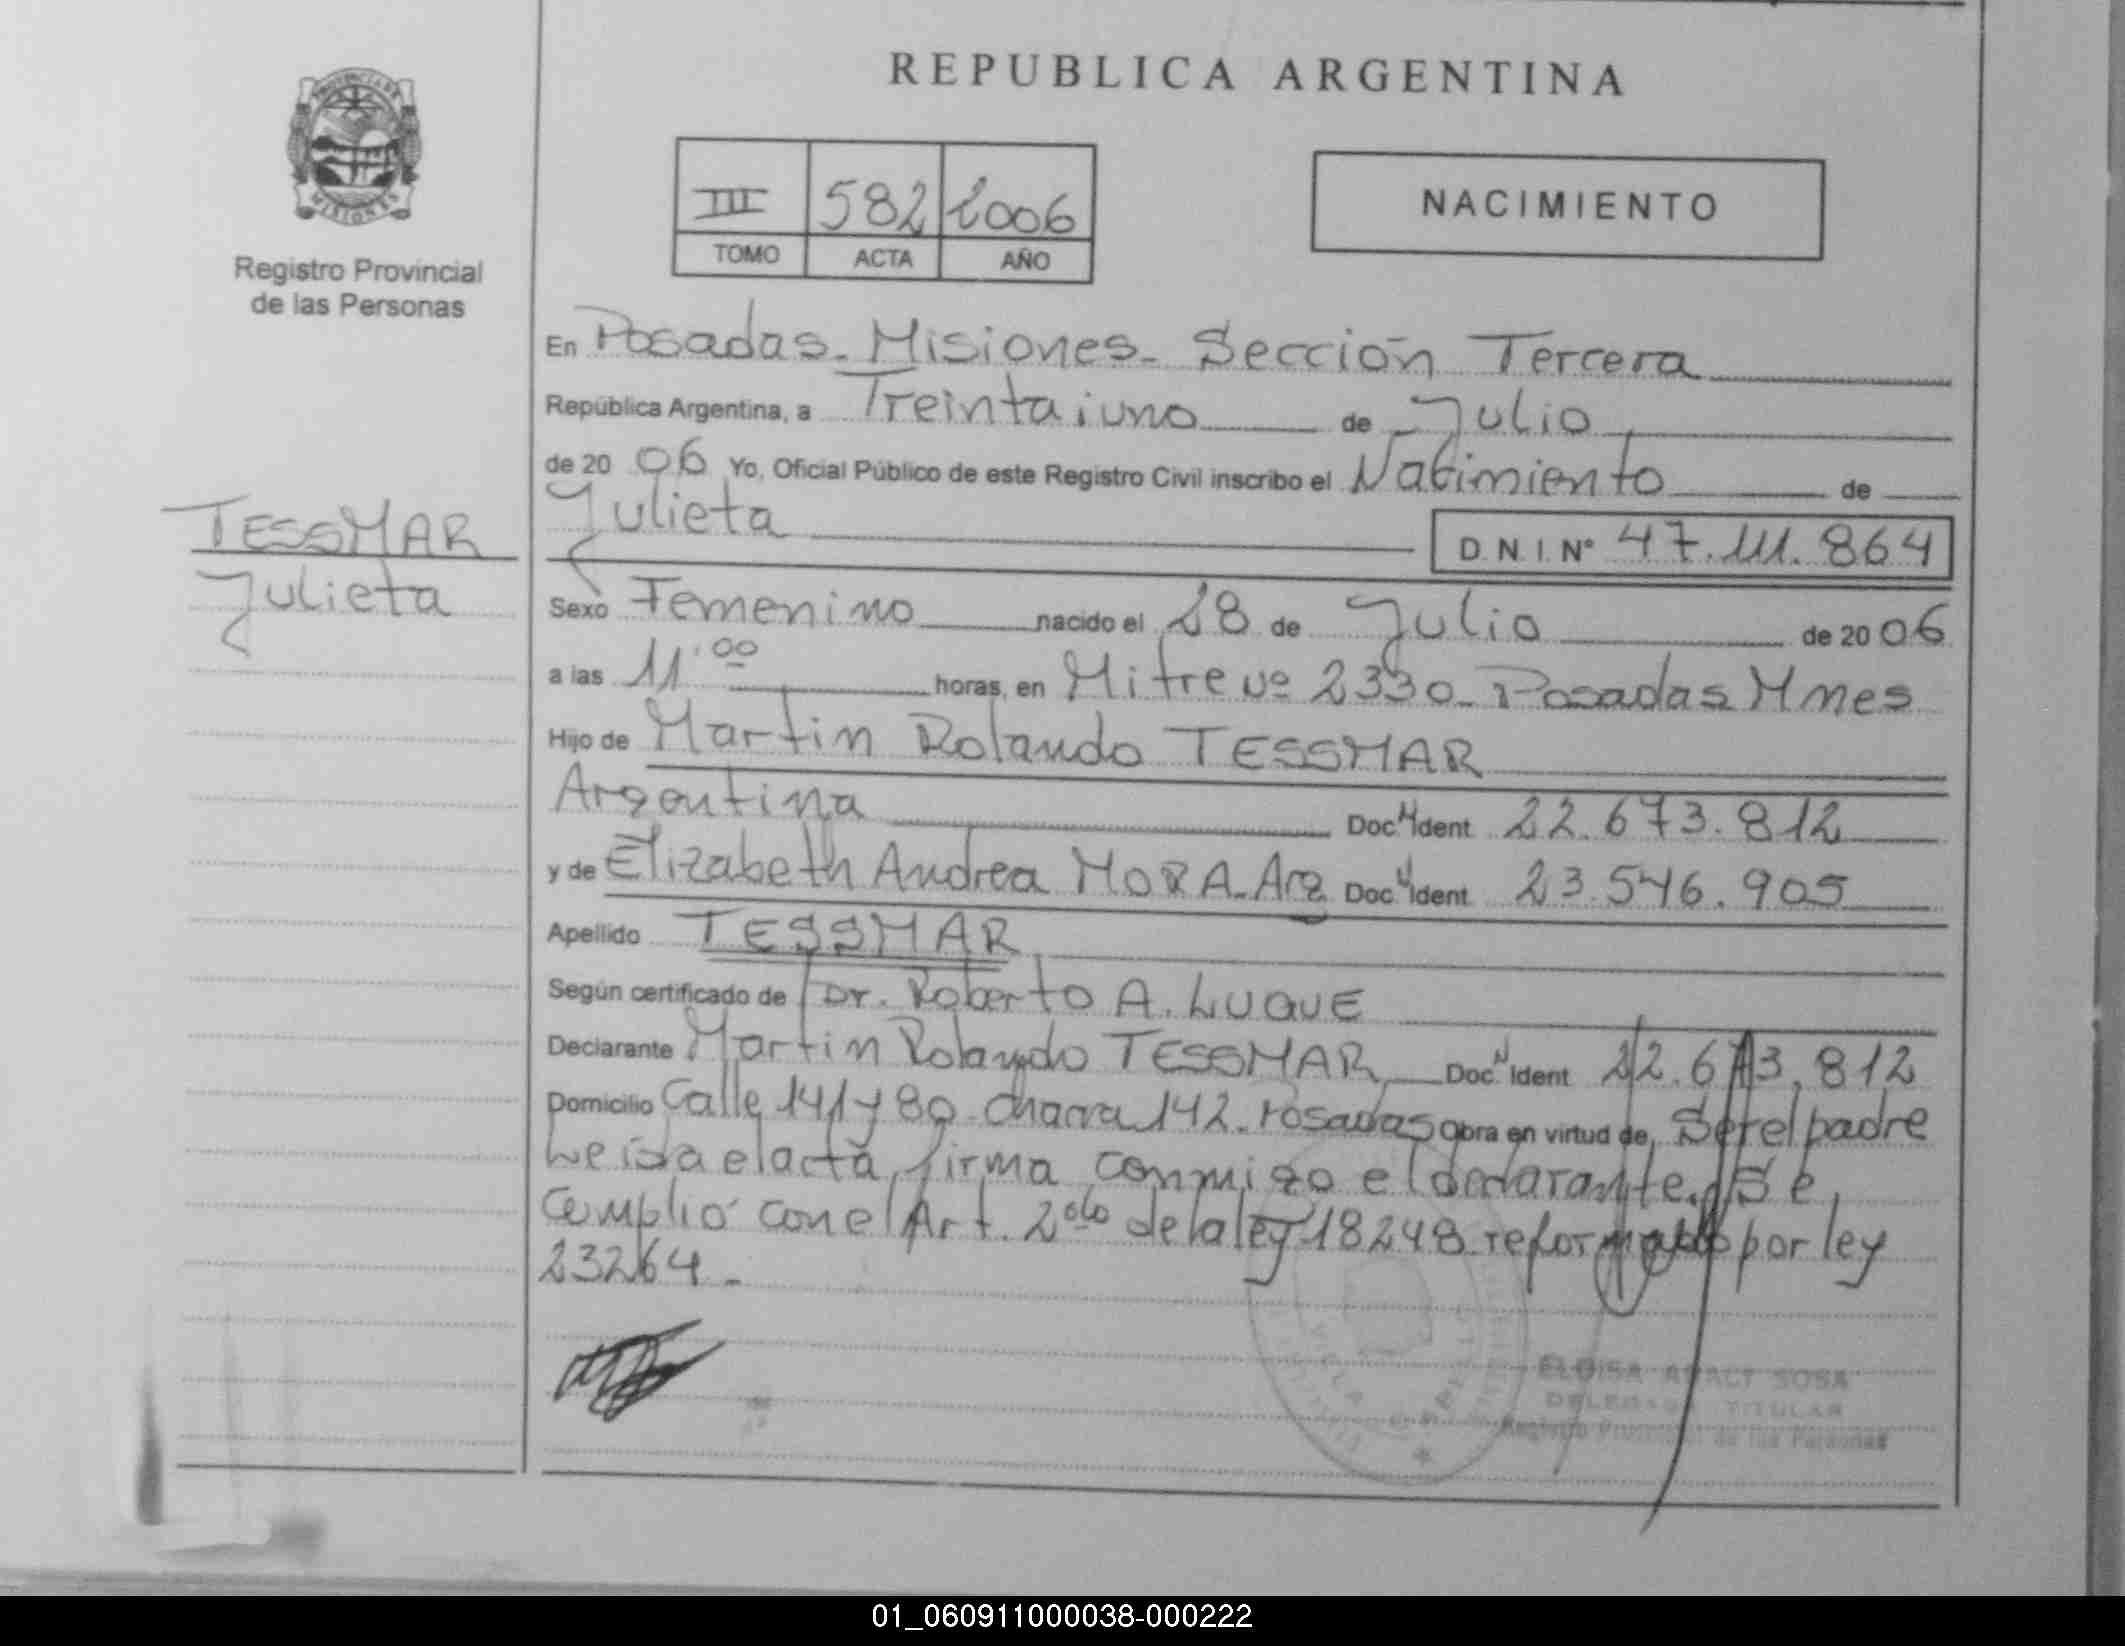 REPUBLICA ARGENTINA
PROVINCIA DE
MISIONES
Registro Provincial
de las Personas
III 582 2006
TOMO ACTA AÑO
NACIMIENTO
En Posadas - Misiones - Sección Tercera
República Argentina, a Treintaiuno de Julio
de 2006 Yo, Oficial Público de este Registro Civil inscribo el Nacimiento de
Julieta D.N.I. Nº 47.111.864
TESSMAR
Julieta
Sexo Femenino nacido el 28 de Julio de 2006
a las 11:00 horas, en Mitre Nº 2330 - Posadas Mnes
Hijo de Martin Rolando TESSMAR
Argentina Doc. N Ident 22.673.812
y de Elizabeth Andrea MORA - Arg Doc. N Ident 23.546.905
Apellido TESSMAR
Según certificado de Dr. Roberto A. LUQUE
Declarante Martin Rolando TESSMAR Doc. N Ident 22.673.812
Domicilio Calle 141 y 80 - Chacra 142 - Posadas obra en virtud de Ser el padre
Leida el acta, firma conmigo el declarante. Se
cumplió con el Art. 2do de la ley 18248 reformado por ley
23264 -
ELOISA SOSA
DELEGADA TITULAR
Registro Provincial de las Personas
01_060911000038-000222